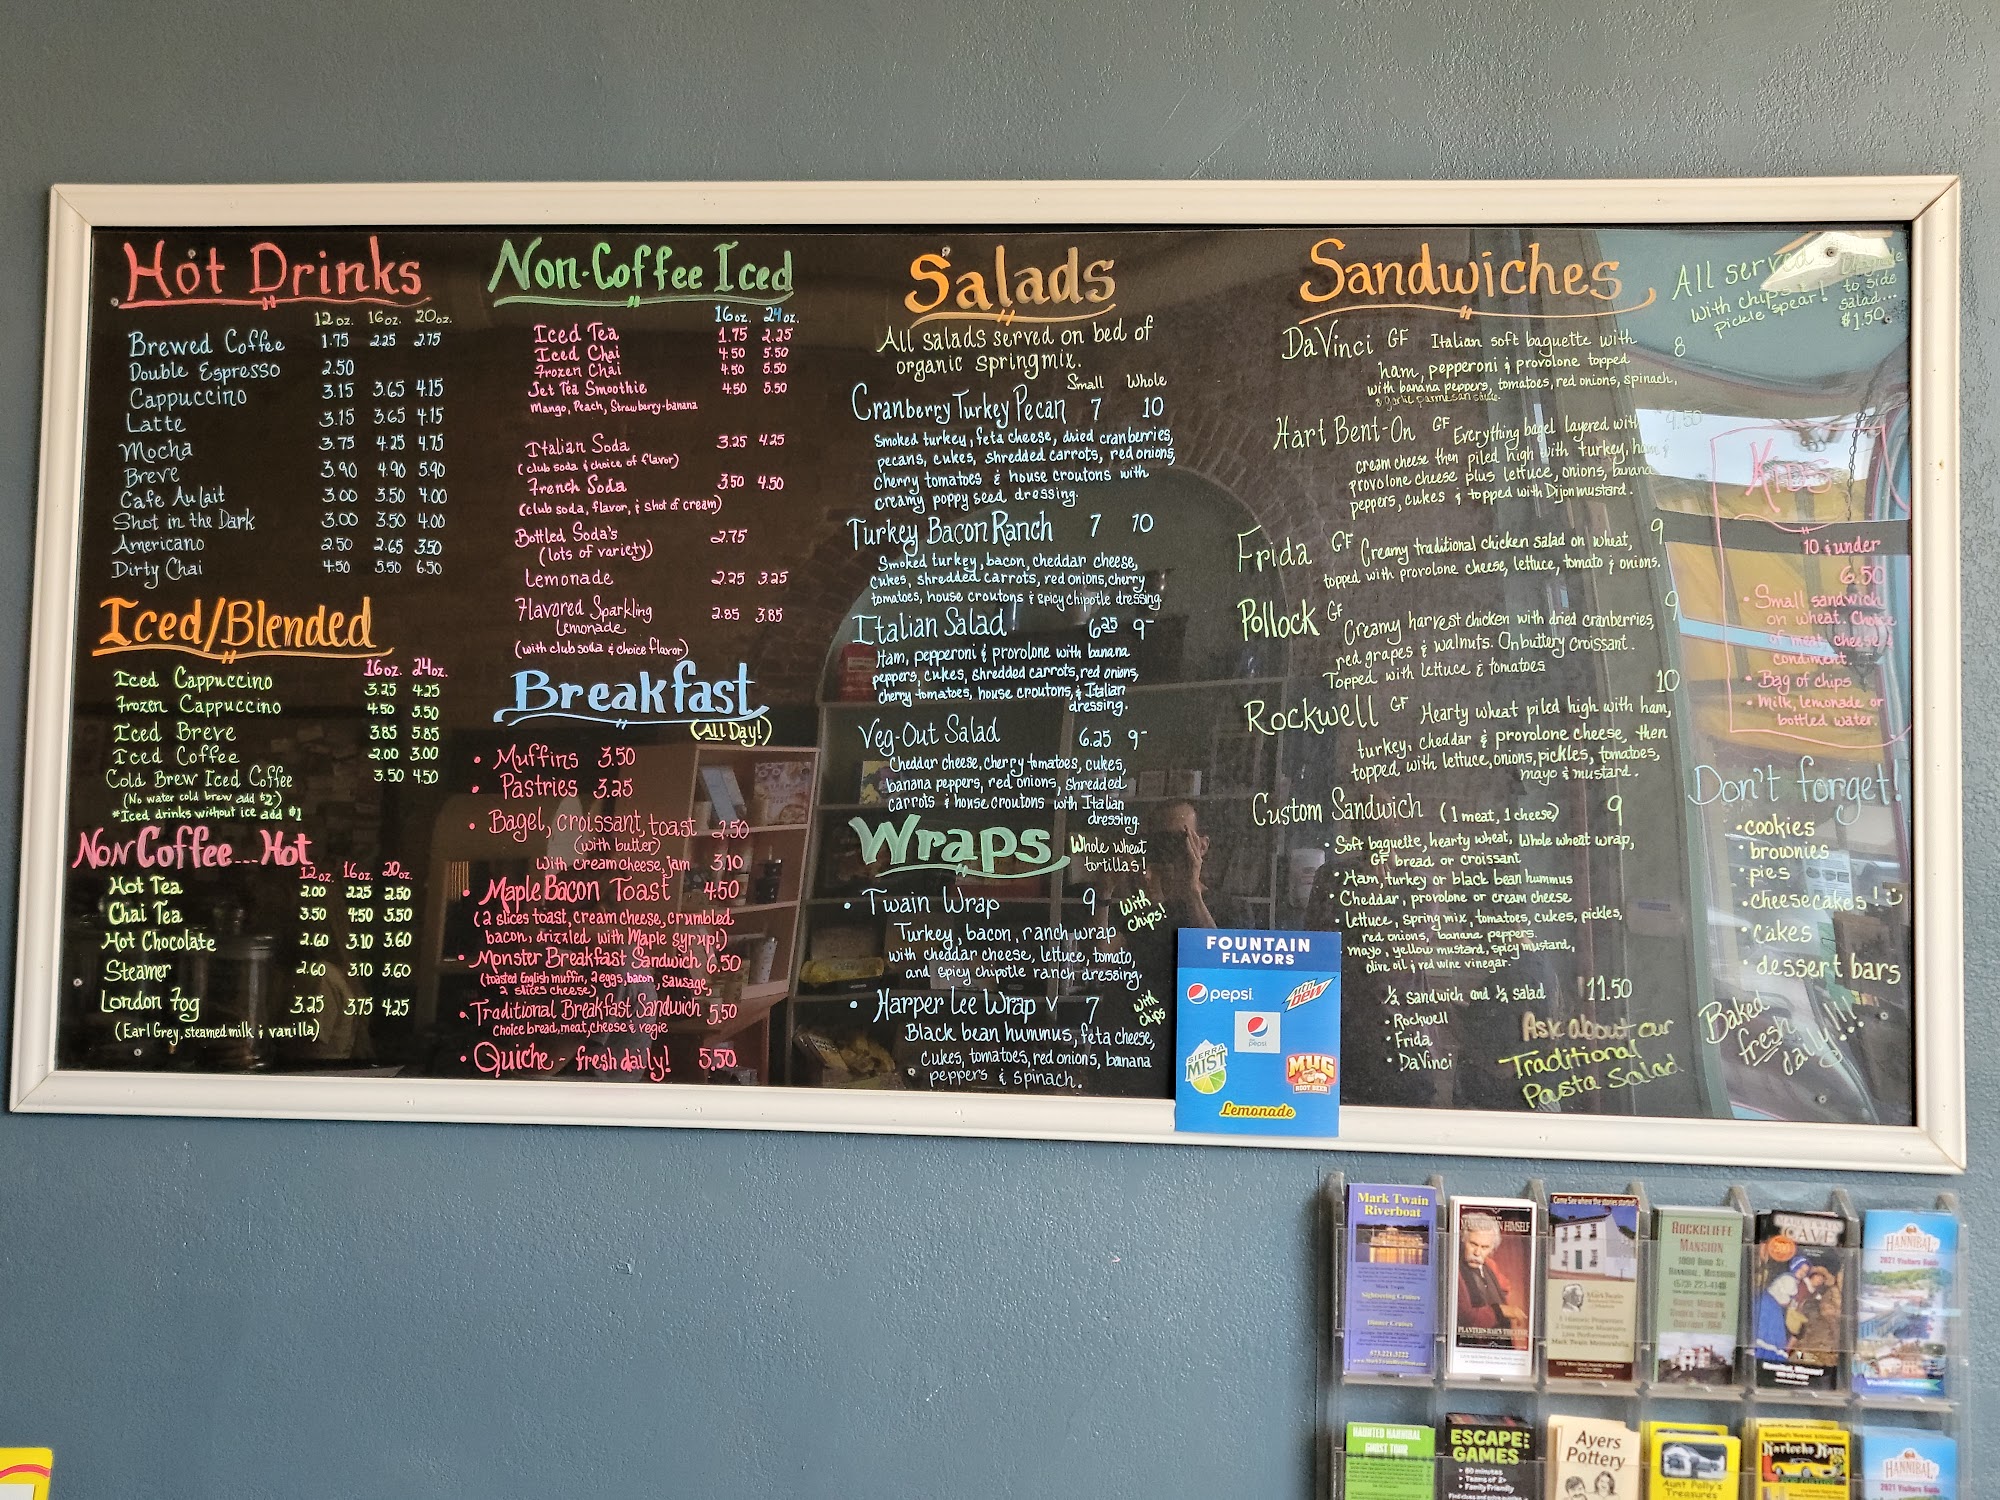 Hot Drinks
12oz. 16oz. 20oz.
Brewed Coffee 1.75 2.25 2.75
Double Espresso 2.50
Cappuccino 3.15 3.65 4.15
Latte 3.15 3.65 4.15
Mocha 3.75 4.25 4.75
Breve 3.90 4.90 5.90
Cafe Au lait 3.00 3.50 4.00
Shot in the Dark 3.00 3.50 4.00
Americano 2.50 2.65 3.50
Dirty Chai 4.50 5.50 6.50
Iced/Blended
16oz. 24oz.
Iced Cappuccino 3.25 4.25
Frozen Cappuccino 4.50 5.50
Iced Breve 3.85 5.85
Iced Coffee 2.00 3.00
Cold Brew Iced Coffee 3.50 4.50
(No water cold brew add $2)
*Iced drinks without ice add $1
Non Coffee...Hot
12oz. 16oz. 20oz.
Hot Tea 2.00 2.25 2.50
Chai Tea 3.50 4.50 5.50
Hot Chocolate 2.60 3.10 3.60
Steamer 2.60 3.10 3.60
London Fog 3.25 3.75 4.25
(Earl Grey, steamed milk & vanilla)
Non-Coffee Iced
16oz. 24oz.
Iced Tea 1.75 2.25
Iced Chai 4.50 5.50
Frozen Chai 4.50 5.50
Jet Tea Smoothie 4.50 5.50
Mango, Peach, Strawberry-banana
Italian Soda 3.25 4.25
(club soda & choice of flavor)
French Soda 3.50 4.50
(club soda, flavor, & shot of cream)
Bottled Soda's 2.75
(lots of variety)
Lemonade 2.25 3.25
Flavored Sparkling
Lemonade 2.85 3.85
(with club soda & choice flavor)
Breakfast
(All Day!)
• Muffins 3.50
• Pastries 3.25
• Bagel, croissant, toast 2.50
(with butter)
with cream cheese, jam 3.10
• Maple Bacon Toast 4.50
(2 slices toast, cream cheese, crumbled
bacon, drizzled with Maple syrup!)
• Monster Breakfast Sandwich 6.50
(toasted English muffin, 2 eggs, bacon, sausage,
2 slices cheese)
• Traditional Breakfast Sandwich 5.50
choice bread, meat, cheese & vegie
• Quiche - fresh daily! 5.50
Salads
All salads served on bed of
organic spring mix.
Small Whole
Cranberry Turkey Pecan 7 10
Smoked turkey, feta cheese, dried cranberries,
pecans, cukes, shredded carrots, red onions,
cherry tomatoes & house croutons with
creamy poppy seed dressing.
Turkey Bacon Ranch 7 10
Smoked turkey, bacon, cheddar cheese,
cukes, shredded carrots, red onions, cherry
tomatoes, house croutons & spicy chipotle dressing.
Italian Salad 6.25 9-
Ham, pepperoni & provolone with banana
peppers, cukes, shredded carrots, red onions,
cherry tomatoes, house croutons, & Italian
dressing.
Veg-Out Salad 6.25 9-
Cheddar cheese, cherry tomatoes, cukes,
banana peppers, red onions, shredded
carrots & house croutons with Italian
dressing.
Wraps
Whole wheat
tortillas!
• Twain Wrap 9
With
Chips!
Turkey, bacon, ranch wrap
with cheddar cheese, lettuce, tomato,
and spicy chipotle ranch dressing.
• Harper Lee Wrap V 7
with
chips
Black bean hummus, feta cheese,
cukes, tomatoes, red onions, banana
peppers & spinach.
FOUNTAIN
FLAVORS
pepsi
mtn DEW
pepsi
SIERRA
MIST
MUG
ROOT BEER
Lemonade
Sandwiches
All served
with chips &
pickle spear!
to side
salad...
$1.50
DaVinci GF Italian soft baguette with 8
ham, pepperoni & provolone topped
with banana peppers, tomatoes, red onions, spinach,
& garlic parmesan sauce.
Hart Bent-On GF Everything bagel layered with 9.50
cream cheese then piled high with turkey, ham &
provolone cheese plus lettuce, onions, banana
peppers, cukes & topped with Dijon mustard.
Frida GF Creamy traditional chicken salad on wheat, 9
topped with provolone cheese, lettuce, tomato & onions.
Pollock GF Creamy harvest chicken with dried cranberries, 9
red grapes & walnuts. On buttery croissant.
Topped with lettuce & tomatoes
Rockwell GF Hearty wheat piled high with ham, 10
turkey, cheddar & provolone cheese, then
topped with lettuce, onions, pickles, tomatoes,
mayo & mustard.
Custom Sandwich (1 meat, 1 cheese) 9
• Soft baguette, hearty wheat, Whole wheat wrap,
GF bread or croissant
• Ham, turkey or black bean hummus
• Cheddar, provolone or cream cheese
• lettuce, spring mix, tomatoes, cukes, pickles,
red onions, banana peppers.
mayo, yellow mustard, spicy mustard,
olive oil & red wine vinegar.
½ sandwich and ½ salad 11.50
• Rockwell
• Frida
• DaVinci
Ask about our
Traditional
Pasta Salad
Kids
10 & under
6.50
• Small sandwich
on wheat. Choice
of meat, cheese &
condiment.
• Bag of chips
• Milk, lemonade or
bottled water.
Don't forget!
• cookies
• brownies
• pies
• cheesecakes!
• cakes
• dessert bars
Baked
fresh
daily!!!
Mark Twain
Riverboat
Sightseeing Cruises
Dinner Cruises
573.221.3222
HIMSELF
Come See where the stories started!
Mark Twain
ROCKCLIFFE
MANSION
CAVE
HANNIBAL
2021 Visitors Guide
HAUNTED HANNIBAL
GHOST TOUR
ESCAPE:
GAMES
• 60 minutes
• Teams of 2+
• Family Friendly
Ayers
Pottery
Aunt Polly's
Treasures
HANNIBAL
2021 Visitors Guide